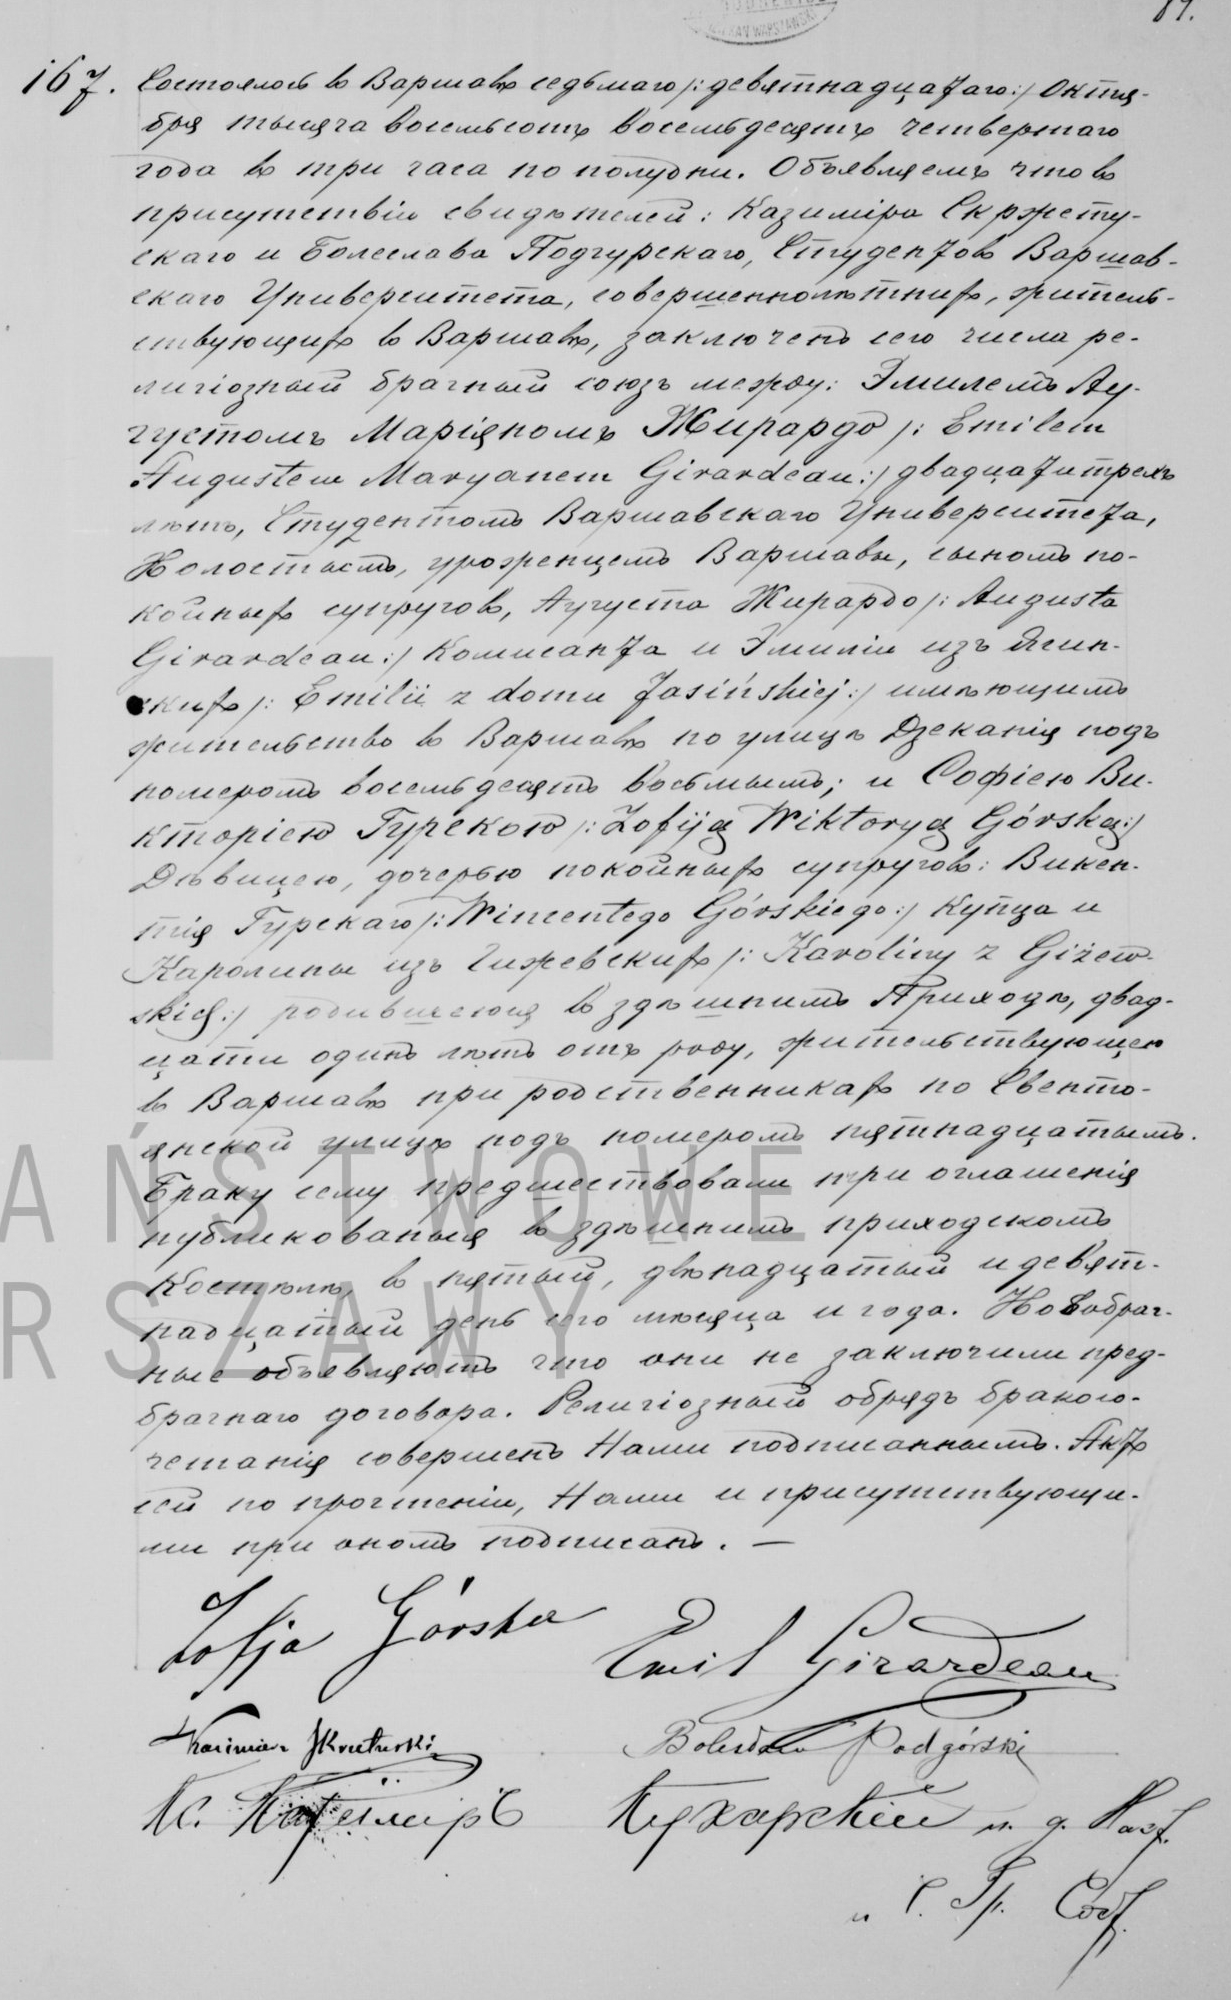 84.
167. Состоялось въ Варшавѣ седьмаго /: девятнадцатаго :/ Октя-
бря тысяча восемьсотъ восемьдесятъ четвертаго
года въ три часа по полудни. Объявляемъ что въ
присутствіи свидѣтелей: Казиміра Скржету-
скаго и Болеслава Подгурскаго, Студентовъ Варшав-
скаго Университета, совершеннолѣтнихъ, житель-
ствующихъ въ Варшавѣ, заключенъ сего числа ре-
лигіозный брачный союзъ между: Эмилемъ Ау-
густомъ Маріяномъ Жирардо /: Emilem
Augustem Maryanem Girardeau :/ двадцатитрехъ
лѣтъ, Студентомъ Варшавскаго Университета,
Холостымъ, урожденцемъ Варшавы, сыномъ по-
койныхъ супруговъ, Аугуста Жирардо /: Augusta
Girardeau :/ Комисанта и Эмиліи изъ Ясин-
скихъ /: Emilii z domu Jasińskiej :/ имѣющимъ
жительство въ Варшавѣ по улицѣ Дзеканія подъ
номеромъ восемьдесятъ восьмымъ; и Софіею Ви-
кторіею Гурскою /: Zofiją Wiktoryą Górską :/
Дѣвицею, дочерью покойныхъ супруговъ: Викен-
тія Гурскаго /: Wincentego Górskiego :/ Купца и
Каролины изъ Гижевскихъ /: Karoliny z Giżew-
skich :/ родившеюся въ здѣшнимъ Приходѣ, двад-
цати одинъ лѣтъ отъ роду, жительствующею
въ Варшавѣ при родственникахъ по Свенто-
янской улицѣ подъ номеромъ пятнадцатымъ.
Браку сему предшествовали три оглашенія
публикованыя въ здѣшнимъ приходскомъ
Костѣлѣ, въ пятый, двѣнадцатый и девят-
надцатый день сего мѣсяца и года. Новобрач-
ные объявляютъ что они не заключили пред-
брачнаго договора. Религіозный обрядъ бракосо-
четанія совершенъ Нами подписаннымъ. Актъ
сей по прочтеніи, Нами и присутствующи-
ми при ономъ подписанъ. —
Zofja Górska
Emil Girardeau
Kazimierz Skrzetuski
Bolesław Podgórski
Кс. Казимиръ
и. д. Наст.
и С. Гр. Сост.
PAŃSTWOWE
WARSZAWY